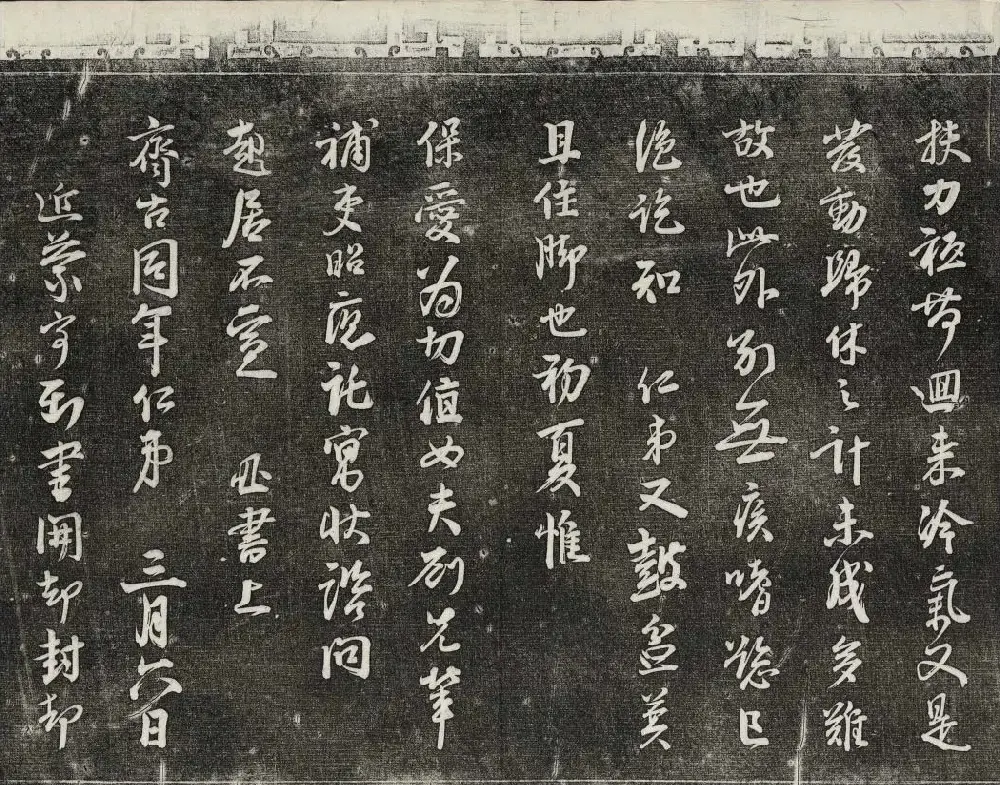 扶力祗迴来冷氣又是
發動歸休之計未成多難
故也此外別無疾嗜慾已
絶訖知 仁弟又鼓盆莫
且住脚也初夏惟
保愛為切值女夫兄
補吏昭應託寫狀諮問
起居不宣 書上
齊古同年仁弟 三月六日
近蒙寄到書開却封却